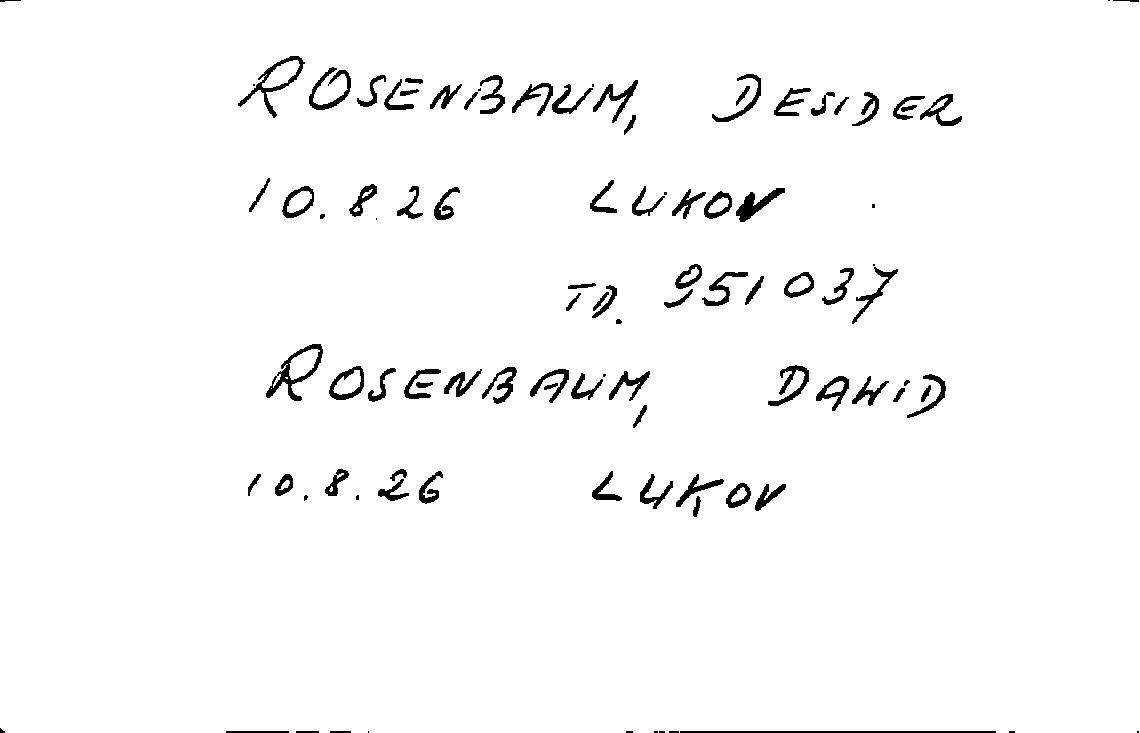 ROSENBAUM, DESIDER
10.8.26 LUKOV
TD. 951037
ROSENBAUM, DAWID
10.8.26 LUKOV